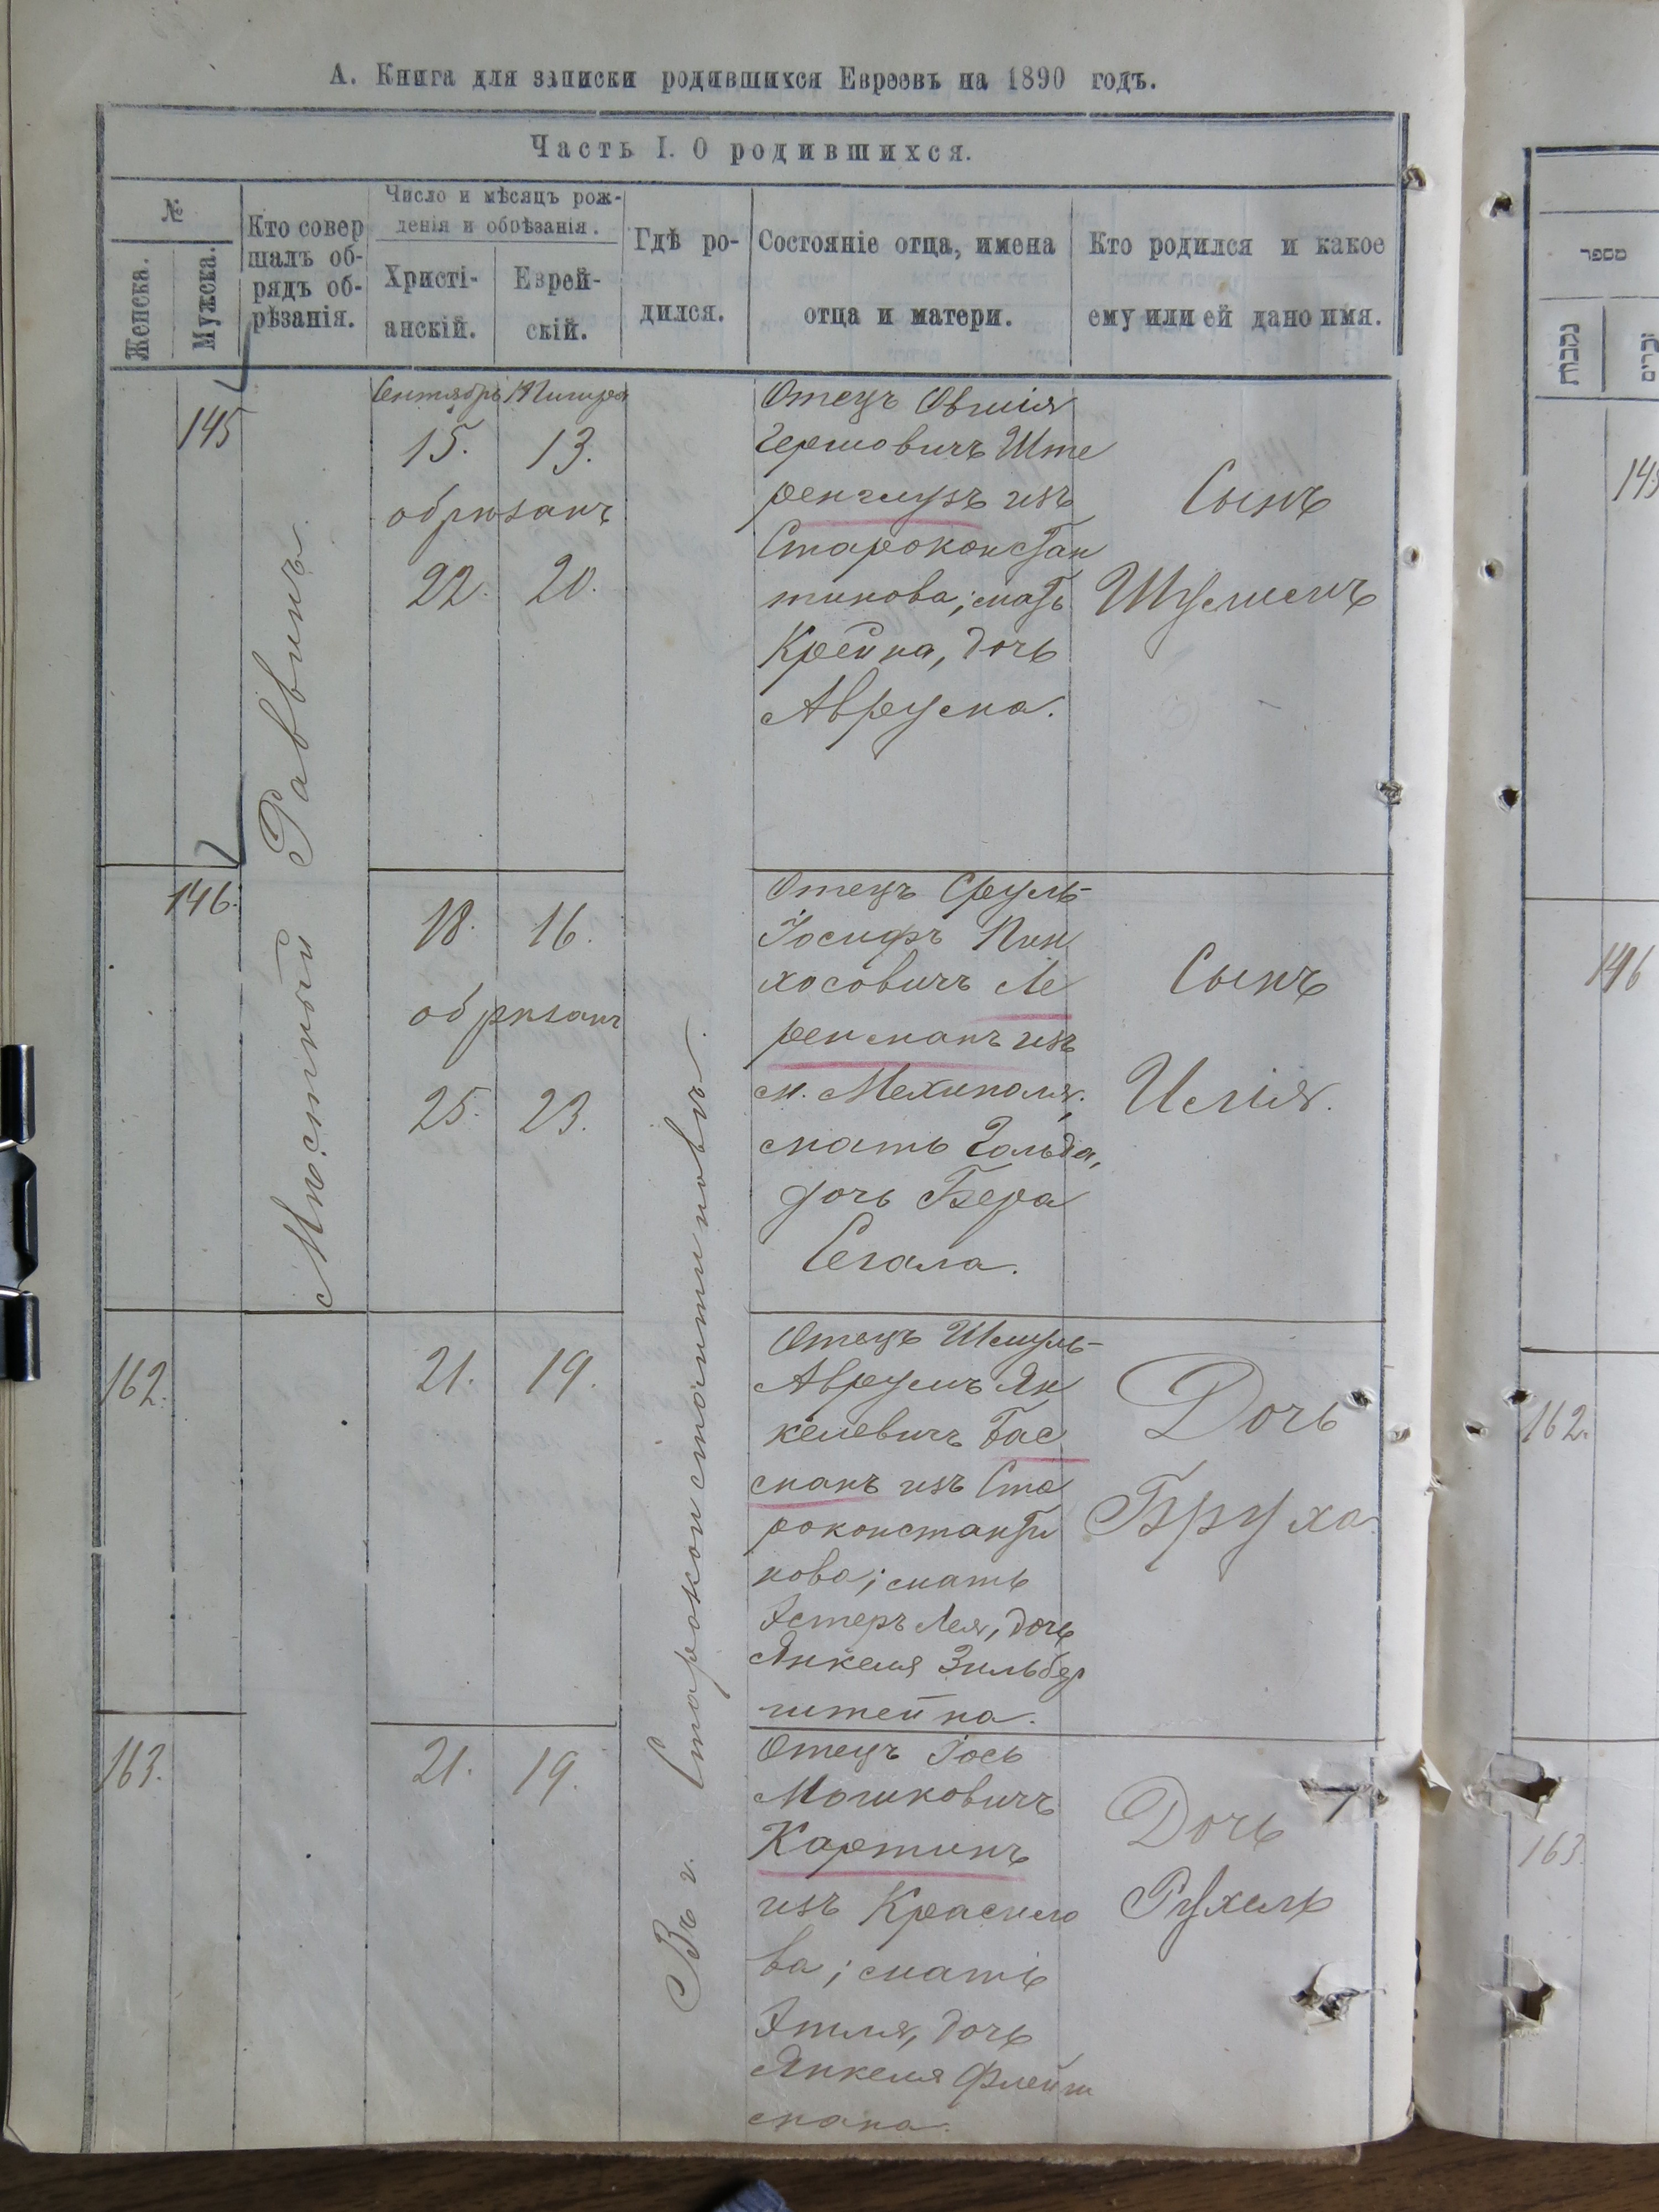 А. Книга для записки родившихся Евреевъ на 1890 годъ.
Часть I. О родившихся.
№
Женска.
Мужска.
Кто совер
шалъ об-
рядъ об-
рѣзанія.
Число и мѣсяцъ рож-
денія и обрѣзанія.
Христі-
анскій.
Еврей-
скій.
Гдѣ ро-
дился.
Состояніе отца, имена
отца и матери.
Кто родился и какое
ему или ей дано имя.
Мѣстный Раввинъ
Въ г. Староконстантиновѣ.
145
Сентябрь Тишрея
15. 13.
обрѣзанъ
22. 20.
Отецъ Овшія
Гершовичъ Ште
ренглузъ изъ
Староконстан
тинова; мать
Крейна, дочь
Аврума.
Сынъ
Шулимъ
146.
18. 16.
обрѣзанъ
25. 23.
Отецъ Сруль-
Іосифъ Пин
хосовичъ Ле
ренманъ изъ
м. Мехиполя;
мать Гольда,
дочь Бера
Сегала.
Сынъ
162.
21. 19.
Отецъ Шмуль-
Аврумъ Ян
келевичъ Гас
манъ изъ Ста
роконстанти
нова; мать
Эстеръ Лея, дочь
Янкеля Зильбер
штейна.
Дочь
Бруха
163.
21. 19.
Отецъ Іось
Мошковичъ
Картинъ
изъ Красило
ва; мать
Этля, дочь
Янкеля Флейш
мана.
Дочь
Рухель
מספר
נקבות
זכרים
145
146
162.
163.